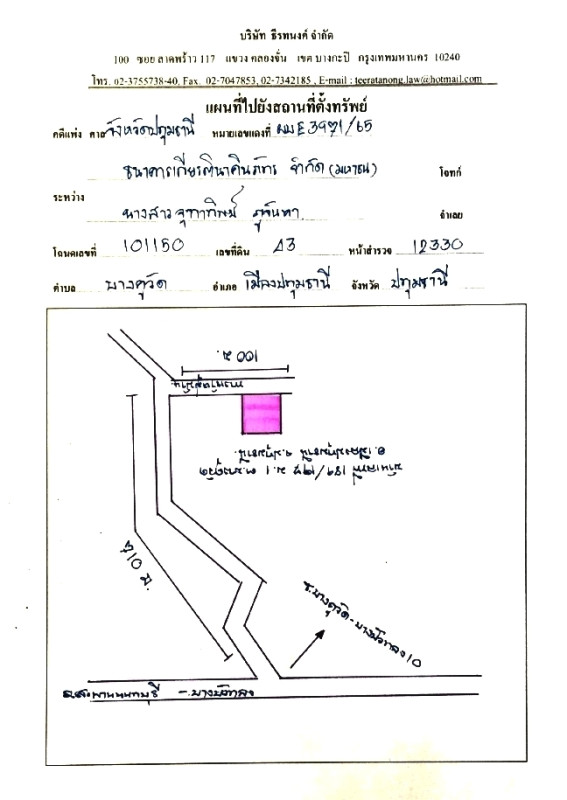 บริษัท ธีรทนงค์ จำกัด
100 ซอย ลาดพร้าว 117 แขวง คลองจั่น เขต บางกะปิ กรุงเทพมหานคร 10240
โทร. 02-3755738-40, Fax. 02-7047853, 02-7342185 , E-mail : teeratanong.law@hotmail.com
แผนที่ไปยังสถานที่ตั้งทรัพย์
คดีแพ่ง ศาล จังหวัดปทุมธานี หมายเลขแดงที่ ผบE3971/65
ธนาคารเกียรตินาคินภัทร จำกัด (มหาชน) โจทก์
ระหว่าง
นางสาว จุฑาทิพย์ จำเลย
โฉนดเลขที่ 101150 เลขที่ดิน 43 หน้าสำรวจ 12330
ตำบล บางคูวัด อำเภอ เมืองปทุมธานี จังหวัด ปทุมธานี
100 ม.
บ้านเลขที่ ม.1 ต.บางคูวัด
อ.เมืองปทุมธานี จ.ปทุมธานี.
710 ม.
ซ.บางคูวัด-บางบัวทอง 10
ถ.สะพานนนทบุรี - บางบัวทอง